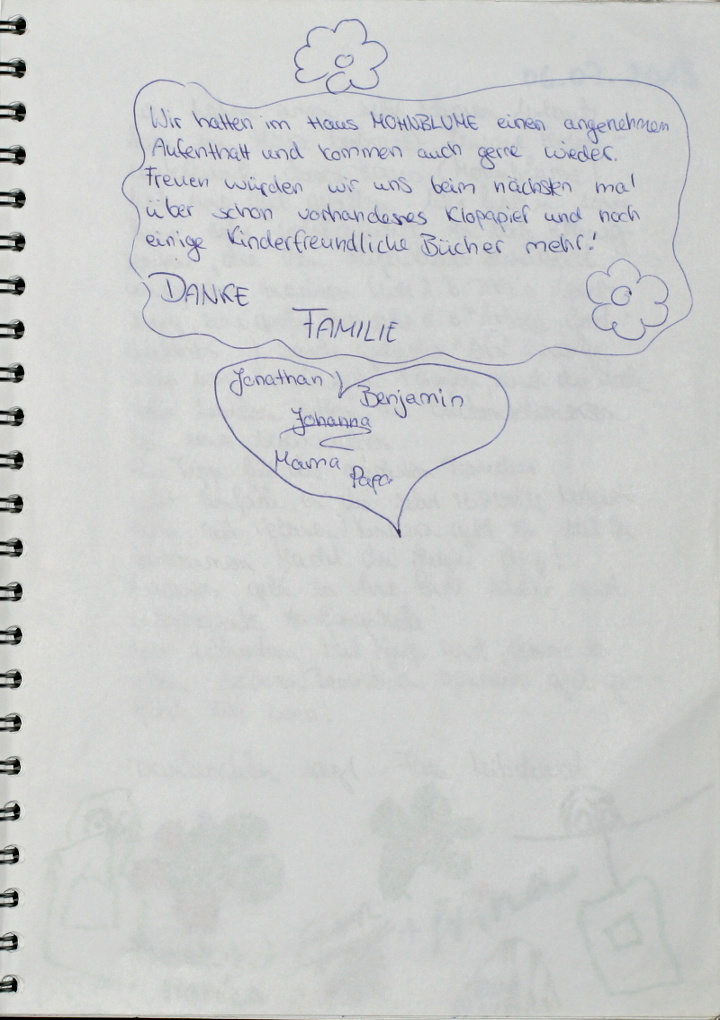 Wir hatten im Haus MOHNBLUME einen angenehmen
Aufenthalt und kommen auch gerne wieder.
Freuen würden wir uns beim nächsten mal
über schon vorhandenes Klopapier und noch
einige Kinderfreundliche Bücher mehr!
DANKE
FAMILIE
Jonathan
Benjamin
Johanna
Mama
Papa